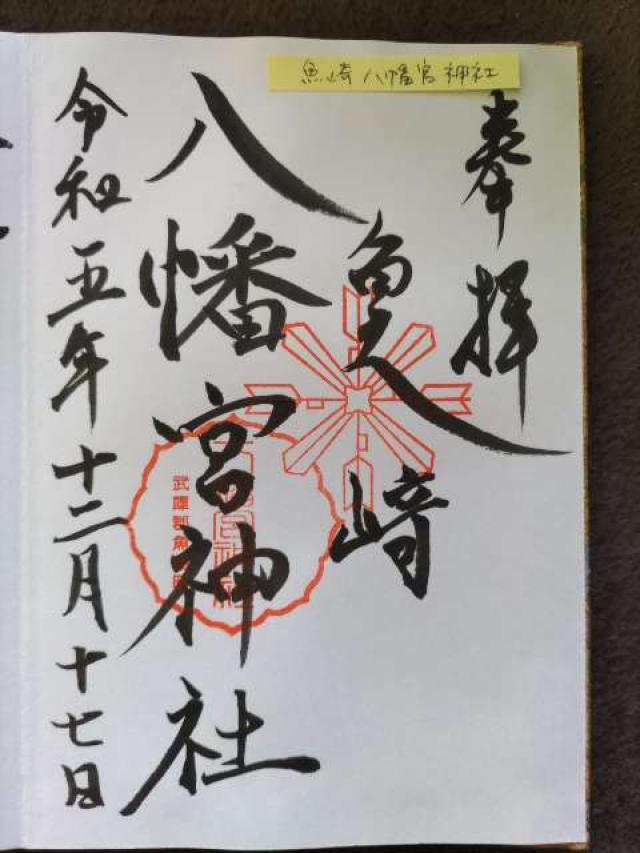 魚崎八幡宮神社
奉拝
魚崎
八幡宮神社
令和五年十二月十七日
武庫郡魚